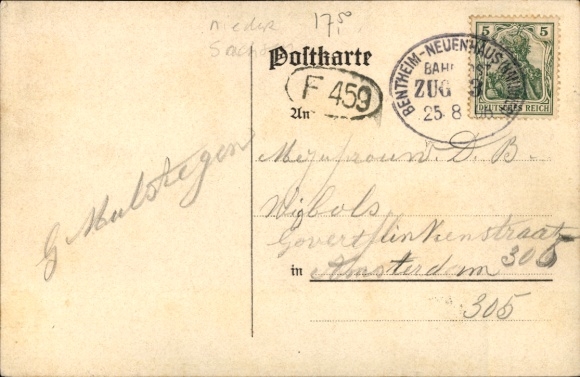 nieder
Sachsen
17,50
Postkarte
BENTHEIM-NEUENHAUS
BAHNPOST
ZUG
25 8
5 5
DEUTSCHES REICH
F 459
An
G Mulstegen
Mejufrouw. D. B.
Wijbols
Govert Flinkenstraat
306
in Amsterdam
305